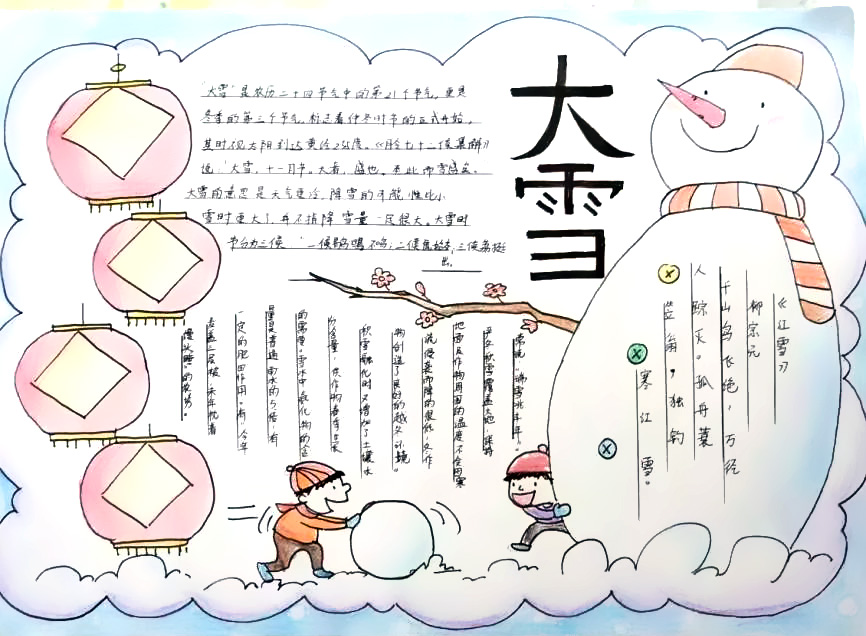 大雪
"大雪"是农历二十四节气中的第21个节气，更是
冬季的第三个节气，标志着仲冬时节的正式开始，
其时视太阳到达黄经255度。《月令七十二候集解》
说："大雪，十一月节。大者，盛也。至此而雪盛矣。
大雪的意思是天气更冷，降雪的可能性比小
雪时更大了，并不指降雪量一定很大。大雪时
节分为三候 一候鹖鴠不鸣；二候虎始交；三候荔挺
出。
常说，"瑞雪兆丰年"。
严冬积雪覆盖大地，保持
地面及作物周围的温度不会因寒
流侵袭而降的很低，冬作
物创造了良好的越冬环境
积雪融化时又增加了土壤水
份含量，供作物春季生长
的需要。雪水中氮化物的含
量是普通雨水的5倍，有
一定的肥田作用。有"今年
麦盖三层被，来年枕着
馒头睡"的农谚。
《江雪》
柳宗元
千山鸟飞绝，万径
人踪灭。孤舟蓑
笠翁，独钓
寒江雪。